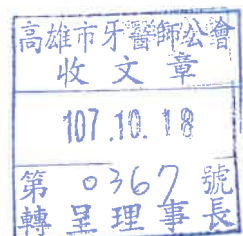 高雄市牙醫師公會
收文章
107.10.18
第0367號
轉呈理事長